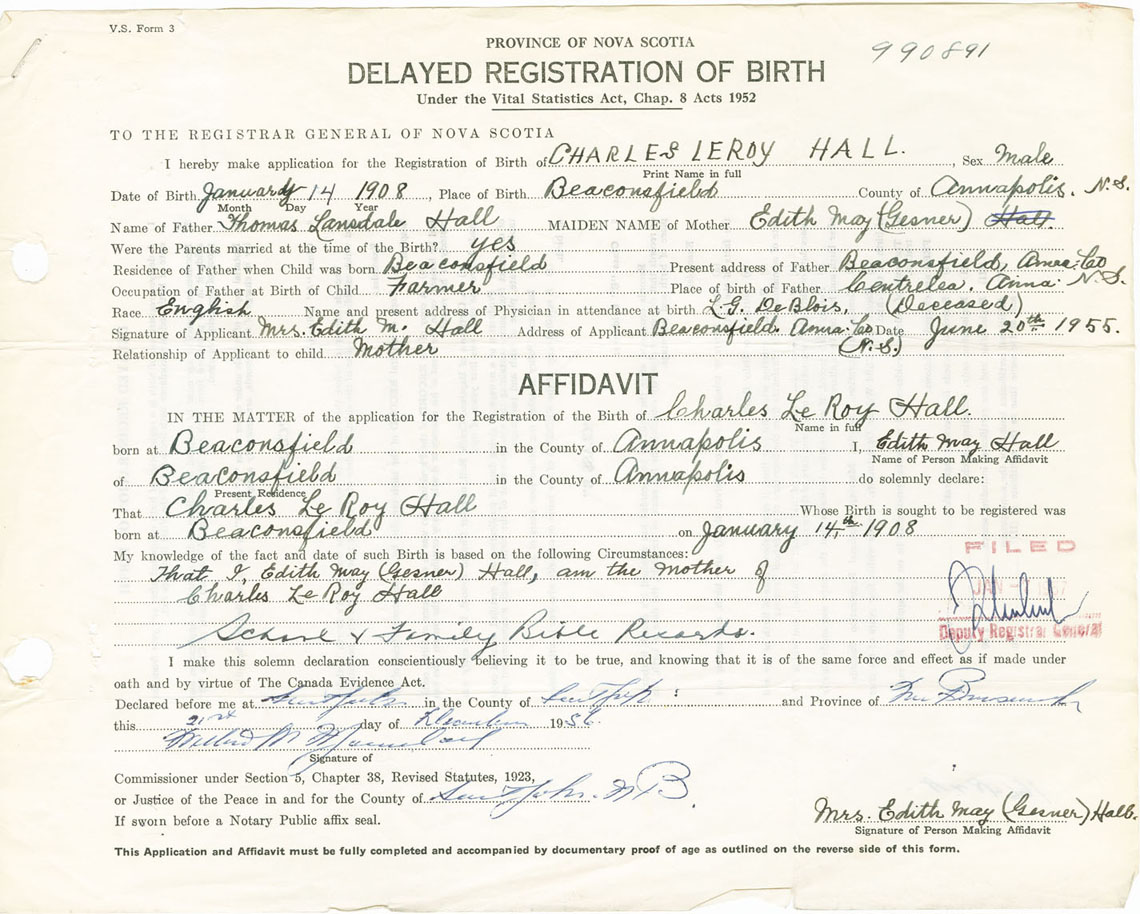 V.S. Form 3
PROVINCE OF NOVA SCOTIA
990891
DELAYED REGISTRATION OF BIRTH
Under the Vital Statistics Act, Chap. 8 Acts 1952
TO THE REGISTRAR GENERAL OF NOVA SCOTIA
I hereby make application for the Registration of Birth of CHARLES LEROY HALL. , Sex Male
Print Name in full
Date of Birth January 14 1908 , Place of Birth Beaconsfield County of Annapolis. N.S.
Month Day Year
Name of Father Thomas Lansdale Hall MAIDEN NAME of Mother Edith May (Gesner) Hall.
Were the Parents married at the time of the Birth? yes
Residence of Father when Child was born Beaconsfield Present address of Father Beaconsfield, Anna. Co N.S.
Occupation of Father at Birth of Child Farmer Place of birth of Father Centrelea. Anna.
Race English Name and present address of Physician in attendance at birth L.G. DeBlois, (Deceased)
Signature of Applicant Mrs. Edith M. Hall Address of Applicant Beaconsfield. Anna. Co Date June 20th 1955.
(N.S.)
Relationship of Applicant to child Mother
AFFIDAVIT
IN THE MATTER of the application for the Registration of the Birth of Charles Le Roy Hall.
Name in full
born at Beaconsfield in the County of Annapolis I, Edith May Hall
Name of Person Making Affidavit
of Beaconsfield in the County of Annapolis do solemnly declare:
Present Residence
That Charles Le Roy Hall Whose Birth is sought to be registered was
born at Beaconsfield on January 14th 1908
My knowledge of the fact and date of such Birth is based on the following Circumstances:
That I, Edith May (Gesner) Hall, am the Mother of
Charles Le Roy Hall
FILED
JAN
Deputy Registrar General
School & Family Bible Records.
I make this solemn declaration conscientiously believing it to be true, and knowing that it is of the same force and effect as if made under
oath and by virtue of The Canada Evidence Act.
Declared before me at Saint John in the County of Saint John and Province of New Brunswick
this 21st day of December 1956.
Signature of
Commissioner under Section 5, Chapter 38, Revised Statutes, 1923,
or Justice of the Peace in and for the County of Saint John. N B.
If sworn before a Notary Public affix seal.
Mrs. Edith May (Gesner) Hall.
Signature of Person Making Affidavit
This Application and Affidavit must be fully completed and accompanied by documentary proof of age as outlined on the reverse side of this form.